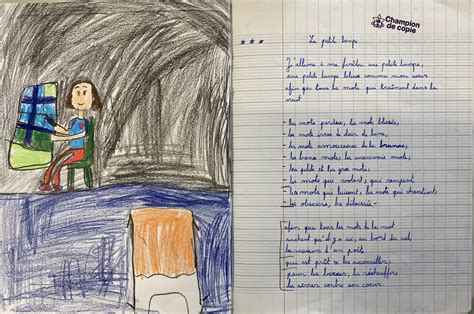 Champion
de copie
La petite lampe
J'allume à ma fenêtre une petite lampe,
une petite lampe bleue comme mon cœur
afin que tous les mots qui traînent dans la
nuit
- les mots perdus, les mots blessés,
- les mots ivres de clair de lune,
- les mots amoureux de la brume,
- les bons mots, les mauvais mots,
- les petits et les gros mots,
- les mots qui rôdent, qui rampent
- les mots qui luisent, les mots qui chantent
- les obscurs, les délaissés -
afin que tous les mots de la nuit
sachent qu'il y a ici, au bord du ciel,
la maison d'un poète
qui est prêt à les accueillir,
pour les bercer, les réchauffer
les serrer contre son cœur.